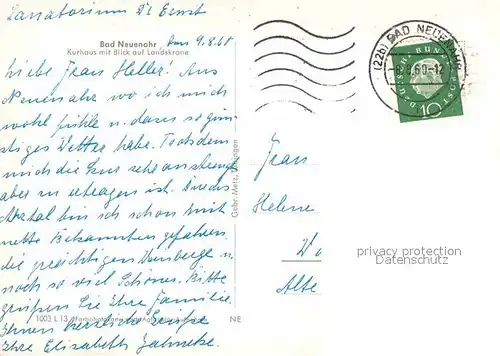 Sanatorium Dr Ernst
Bad Neuenahr, den 9.8.60
Kurhaus mit Blick auf Landskrone
Liebe Frau Heller! Aus
Neuenahr wo ich mich
wohl fühle u. dazu so günstiges
Wetter habe. Trotzdem
mich die Kur sehr anstrengt
aber zu ertragen ist. Durchs
Ahrtal bin ich schon mit
nette Bekannten gefahren
die prächtigen Weinberge u.
noch so viel Schönes. Bitte
grüßen Sie Ihre Familie.
Ihnen herzliche Grüße
Ihre Elisabeth
1003 L 13
NE
Gebr. Metz, Tübingen
(22b) BAD NEUENAHR
.60-12
DEUTSCHE BUNDESPOST
10
Frau
Helene
Alte
privacy protection
Datenschutz